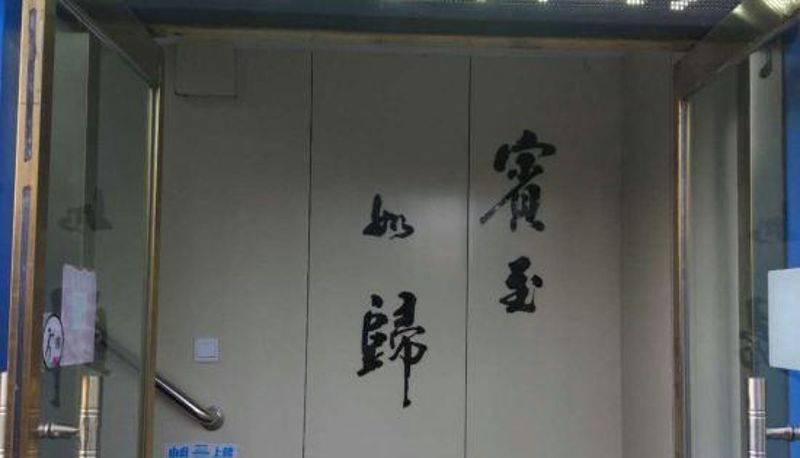 賓至
如歸